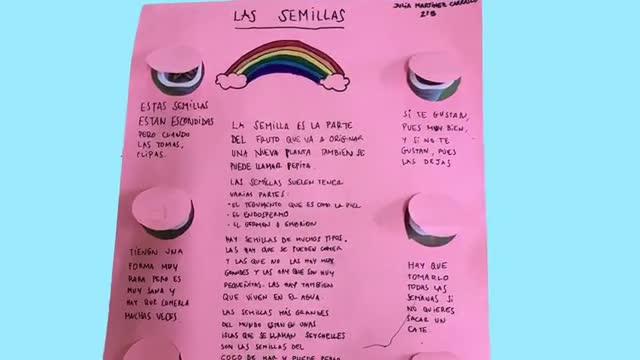 LAS SEMILLAS
JULIA MARTINEZ CARRASCO
2ºB
ESTAS SEMILLAS
ESTAN ESCONDIDAS
PERO CUANDO
LAS TOMAS,
FLIPAS.
SI TE GUSTAN,
PUES MUY BIEN,
Y SI NO TE
GUSTAN, PUES
LAS DEJAS
LA SEMILLA ES LA PARTE
DEL FRUTO QUE VA A ORIGINAR
UNA NUEVA PLANTA TAMBIEN SE
PUEDE LLAMAR PEPITA.
LAS SEMILLAS SUELEN TENER
VARIAS PARTES:
-EL TEGUMENTO QUE ES COMO LA PIEL
-EL ENDOSPERMO
-EL GERMEN O EMBRION
HAY SEMILLAS DE MUCHOS TIPOS.
LAS HAY QUE SE PUEDEN COMER
Y LAS QUE NO LAS HAY MUY
GRANDES Y LAS HAY QUE SON MUY
PEQUEÑITAS. LAS HAY TAMBIEN
QUE VIVEN EN EL AGUA.
LAS SEMILLAS MÁS GRANDES
DEL MUNDO ESTAN EN UNAS
ISLAS QUE SE LLAMAN SEYCHELLES
SON LAS SEMILLAS DEL
COCO DE MAR Y PUEDE
TIENEN UNA
FORMA MUY
RARA PERO ES
MUY SANA Y
HAY QUE COMERLA
MUCHAS VECES
HAY QUE
TOMARLO
TODAS LAS
SEMANAS SI
NO QUIERES
SACAR UN
CATE.